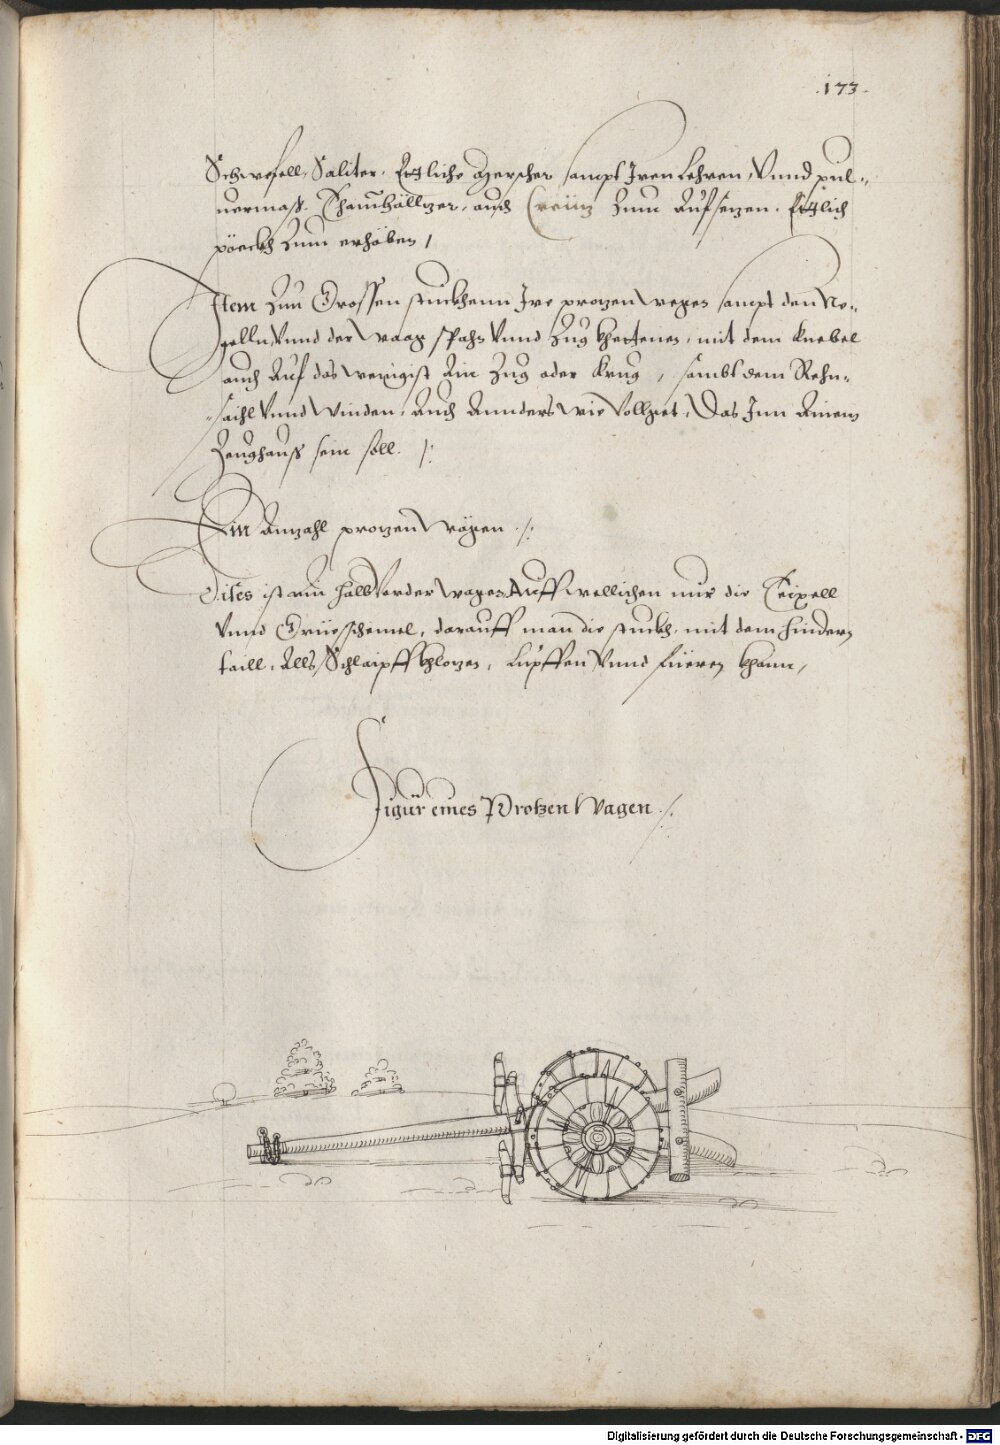 .173.
Schwefell, Saliter, Etliche Herscher sampt Iren Lehren, Vnnd pul=
uermass. Chamhölltzer, auch Creütz Zum Aufsetzen. Etlich
pöeckh Zum erhöben /
Item Zuu Grossen stuckhenn Ire protzen wegen sampt den Ne=
gelln Vnnd der waag spahn Vnnd Zug khettenen, mit dem knebel
auch Auf das wenigist Ain Zug oder krug, sambt dem Rehn=
=saihl Vnnd Winden, Auch Annders wie Vollget, Das Inn Ainem
Zeughauss sein soll. /:
Ein Anzahl protzen Wägen ./:
Dises ist ain halb Vorder wagen Auff wellichen nur die Teixell
Vnnd Trüeschemel, darauff man die stuckh, mit dem hindern
taill, Alls Schlaipff khlotzen, Lupffen Vnnd füeren khann,
Figür eines Protzen Wagen ./:
Digitalisierung gefördert durch die Deutsche Forschungsgemeinschaft - DFG